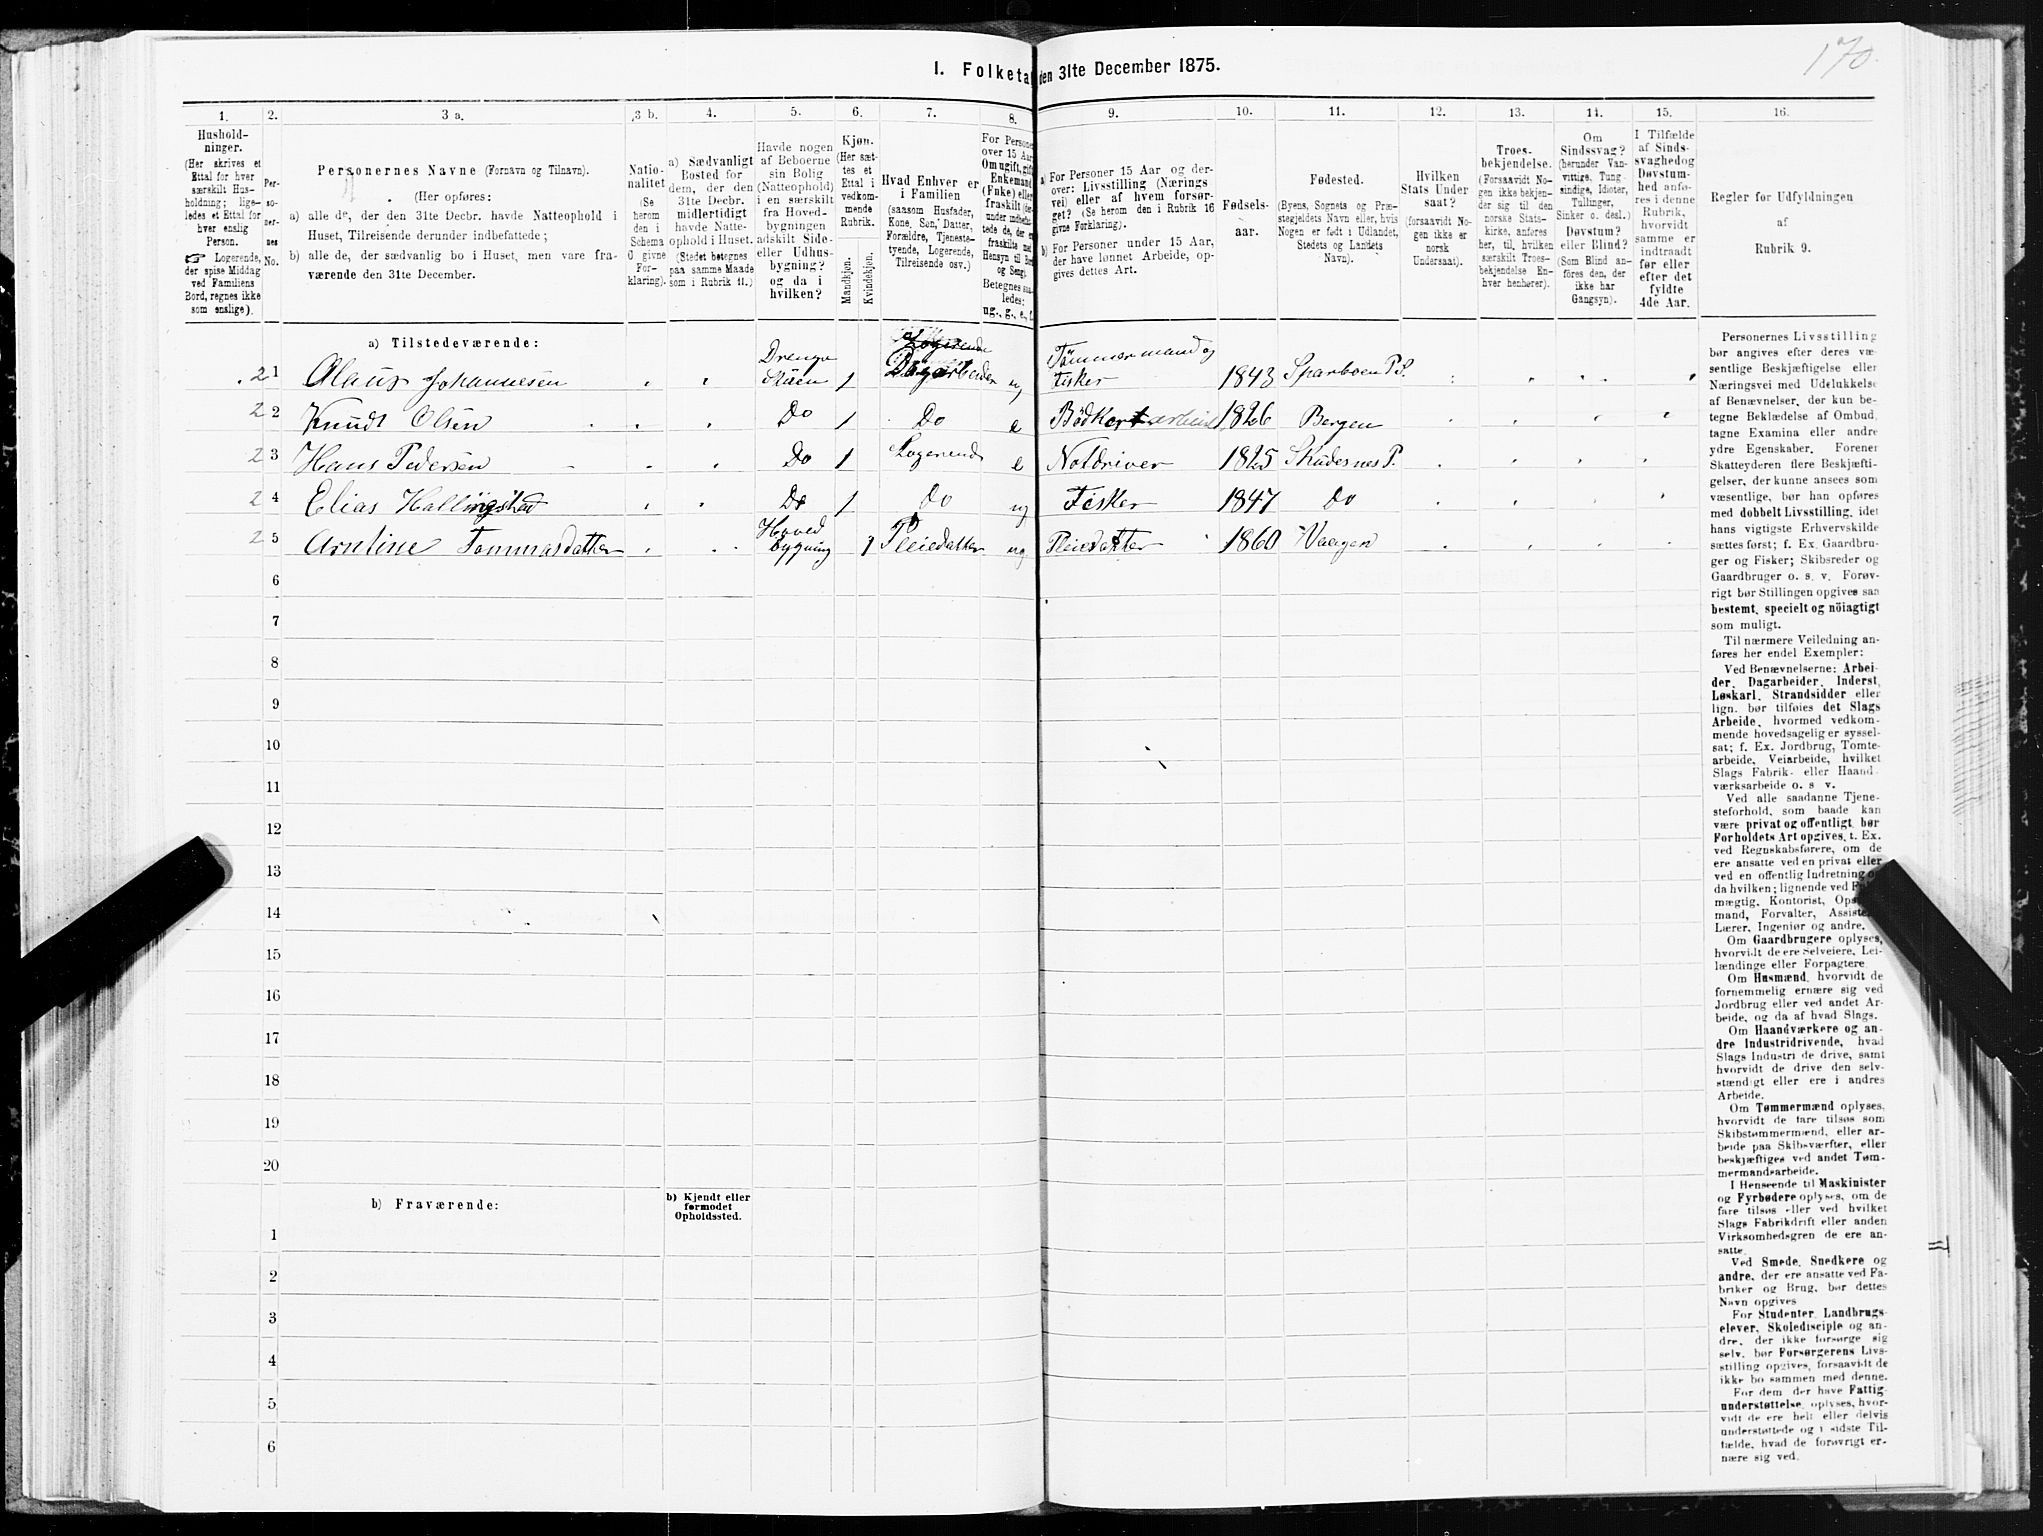 170.
I. Folketal den 31te December 1875.
1. 2. 3 a. 3 b. 4. 5. 6. 7. 8. 9. 10. 11. 12. 13. 14. 15. 16.
Hushold-
ninger.
(Her skrives et
Ettal for hver
særskilt Hus-
holdning; lige-
ledes et Ettal for
hver enslig
Person.
☞ Logerende,
der spise Middag
ved Familiens
Bord, regnes ikke
som enslige).
Per-
so-
ner-
nes
No.
Personernes Navne (Fornavn og Tilnavn).
(Her opføres:
a) alle de, der den 31te Decbr. havde Natteophold i
Huset, Tilreisende derunder indbefattede;
b) alle de, der sædvanlig bo i Huset, men vare fra-
værende den 31te December.
Natio-
nalitet
(Se
herom
den i
Schema
O givne
For-
klaring).
a) Sædvanligt
Bosted for
dem, der den
31te Decbr.
midlertidigt
havde Natte-
ophold i Huset.
(Stedet betegnes
paa samme Maade
som i Rubrik 11.)
Havde nogen
af Beboerne
sin Bolig
(Natteophold)
i en særskilt
fra Hoved-
bygningen
adskilt Side-
eller Udhus-
bygning?
og da i
hvilken?
Kjøn.
(Her sæt-
tes et
Ettal i
vedkom-
mende
Rubrik.
Mandkjøn.
Kvindekjøn.
Hvad Enhver er
i Familien
(saasom Husfader,
Kone, Søn, Datter,
Forældre, Tjeneste-
tyende, Logerende,
Tilreisende osv.)
For Personer
over 15 Aar
Om ugift, gift,
Enkemand
(Fnke) eller
fraskilt (der-
under indbefat-
tede de, der er
fraskilte med
Hensyn til Bord
og Seng).
Betegnes saa-
ledes:
ug., g., e., f.
a) For Personer 15 Aar og der-
over: Livsstilling (Nærings
vei) eller af hvem forsør-
get? (Se herom den i Rubrik 16
givne Forklaring).
b) For Personer under 15 Aar,
der have lønnet Arbeide, op-
gives dettes Art.
Fødsels-
aar.
Fødested.
(Byens, Sognets og Præ-
stegjeldets Navn eller, hvis
Nogen er født i Udlandet,
Stedets og Landets
Navn).
Hvilken
Stats Under
saat?
(forsaavidt No-
gen ikke er
norsk
Undersaat).
Troes-
bekjendelse.
(Forsaavidt No-
gen ikke bekjen-
der sig til den
norske Stats-
kirke, anføres
her, til, hvilken
særskilt Troes-
bekjendelse En-
hver henhører).
Om
Sindssvag?
(herunder Van-
vittige, Tung-
sindige, Idioter,
Tullinger,
Sinker o. desl.)
Døvstum?
eller Blind?
(Som Blind an-
føres den, der
ikke har
Gangsyn).
I Tilfælde
af Sinds-
svaghed og
Døvstum-
hed anfø-
res i denne
Rubrik,
hvorvidt
samme er
indtraadt
før eller
efter det
fyldte
4de Aar.
Regler for Udfyldningen
af
Rubrik 9.
a) Tilstedeværende:
2 1 Olaus Johannesen Drenge Stuen 1 Logerende Dagarbeider ug Tömmermand og Fisker 1843 Sparboen P.
2 2 Knudt Olsen Do 1 Do e Bödker 1826 Bergen
2 3 Hans Pedersen Do 1 Logerende e Notdriver 1825 Skudesnes P.
2 4 Elias Hallingstad Do 1 Do ug Fisker 1847 Do
2 5 Arntine Tommasdatter Hoved bygning 1 Pleiedatter ug Pleiedatter 1860 Vaagen
6
7
8
9
10
11
12
13
14
15
16
17
18
19
20
b) Fraværende:
b) Kjendt eller
formodet
Opholdssted.
1
2
3
4
5
6
Personernes Livsstilling
bør angives efter deres væ-
sentlige Beskjæftigelse eller
Næringsvei med Udelukkelse
af Benævnelser, der kun be-
tegne Beklædelse af Ombud,
tagne Examina eller andre
ydre Egenskaber. Forener
Skatteyderen flere Beskjæfti-
gelser, der kunne ansees som
væsentlige, bør han opføres
med dobbelt Livsstilling, idet
hans vigtigste Erhvervskilde
sættes først; f. Ex. Gaardbru-
ger og Fisker; Skibsreder og
Gaardbruger o. s. v. Forøv-
rigt bør Stillingen opgives saa
bestemt, specielt og nöiagtigt
som muligt.
Til nærmere Veiledning an-
føres her endel Exempler:
Ved Benævnelserne: Arbei-
der, Dagarbeider, Inderst,
Løskarl, Strandsidder eller
lign. bør tilføies det Slags
Arbeide, hvormed vedkom-
mende hovedsagelig er syssel-
sat; f. Ex. Jordbrug, Tomte-
arbeide, Veiarbeide, hvilket
Slags Fabrik- eller Haand-
værksarbeide o. s v.
Ved alle saadanne Tjene-
steforhold, som baade kan
være privat og offentligt, bør
Forholdets Art opgives, t. Ex.
ved Regnskabsførere, om de
ere ansatte ved en privat eller
ved en offentlig Indretning og
da hvilken; lignende ved Fuld-
mægtig, Kontorist, Opsyns-
mand, Forvalter, Assistent,
Lærer, Ingeniør og andre.
Om Gaardbrugere oplyses,
hvorvidt de ere Selveiere, Lei-
lændinge eller Forpagtere.
Om Husmænd, hvorvidt de
fornemmelig ernære sig ved
Jordbrug eller ved andet Ar-
beide, og da af hvad Slags.
Om Haandværkere og an-
dre Industridrivende, hvad
Slags Industri de drive, samt
hvorvidt de drive den selv-
stændigt eller ere i andres
Arbeide.
Om Tømmermænd oplyses,
hvorvidt de fare tilsøs som
Skibstømmermænd, eller ar-
beide paa Skibsværfter, eller
beskjæftiges ved andet Tøm-
mermandsarbeide.
I Henseende til Maskinister
og Fyrbødere oplyses, om de
fare tilsøs eller ved hvilket
Slags Fabrikdrift eller anden
Virksomhedsgren de ere an-
satte.
Ved Smede, Snedkere og
andre, der ere ansatte ved Fa-
briker og Brug, bør dettes
Navn opgives
For Studenter, Landbrugs-
elever, Skoledisciple og an-
dre, der ikke forsørge sig
selv, bør Forsørgerens Livs-
stilling opgives, forsaavidt de
ikke bo sammen med denne.
For dem, der have Fattig-
understøttelse, oplyses, hvor-
vidt de ere helt eller delvis
understøttede og i sidste Til-
fælde, hvad de forøvrigt er-
nære sig ved.